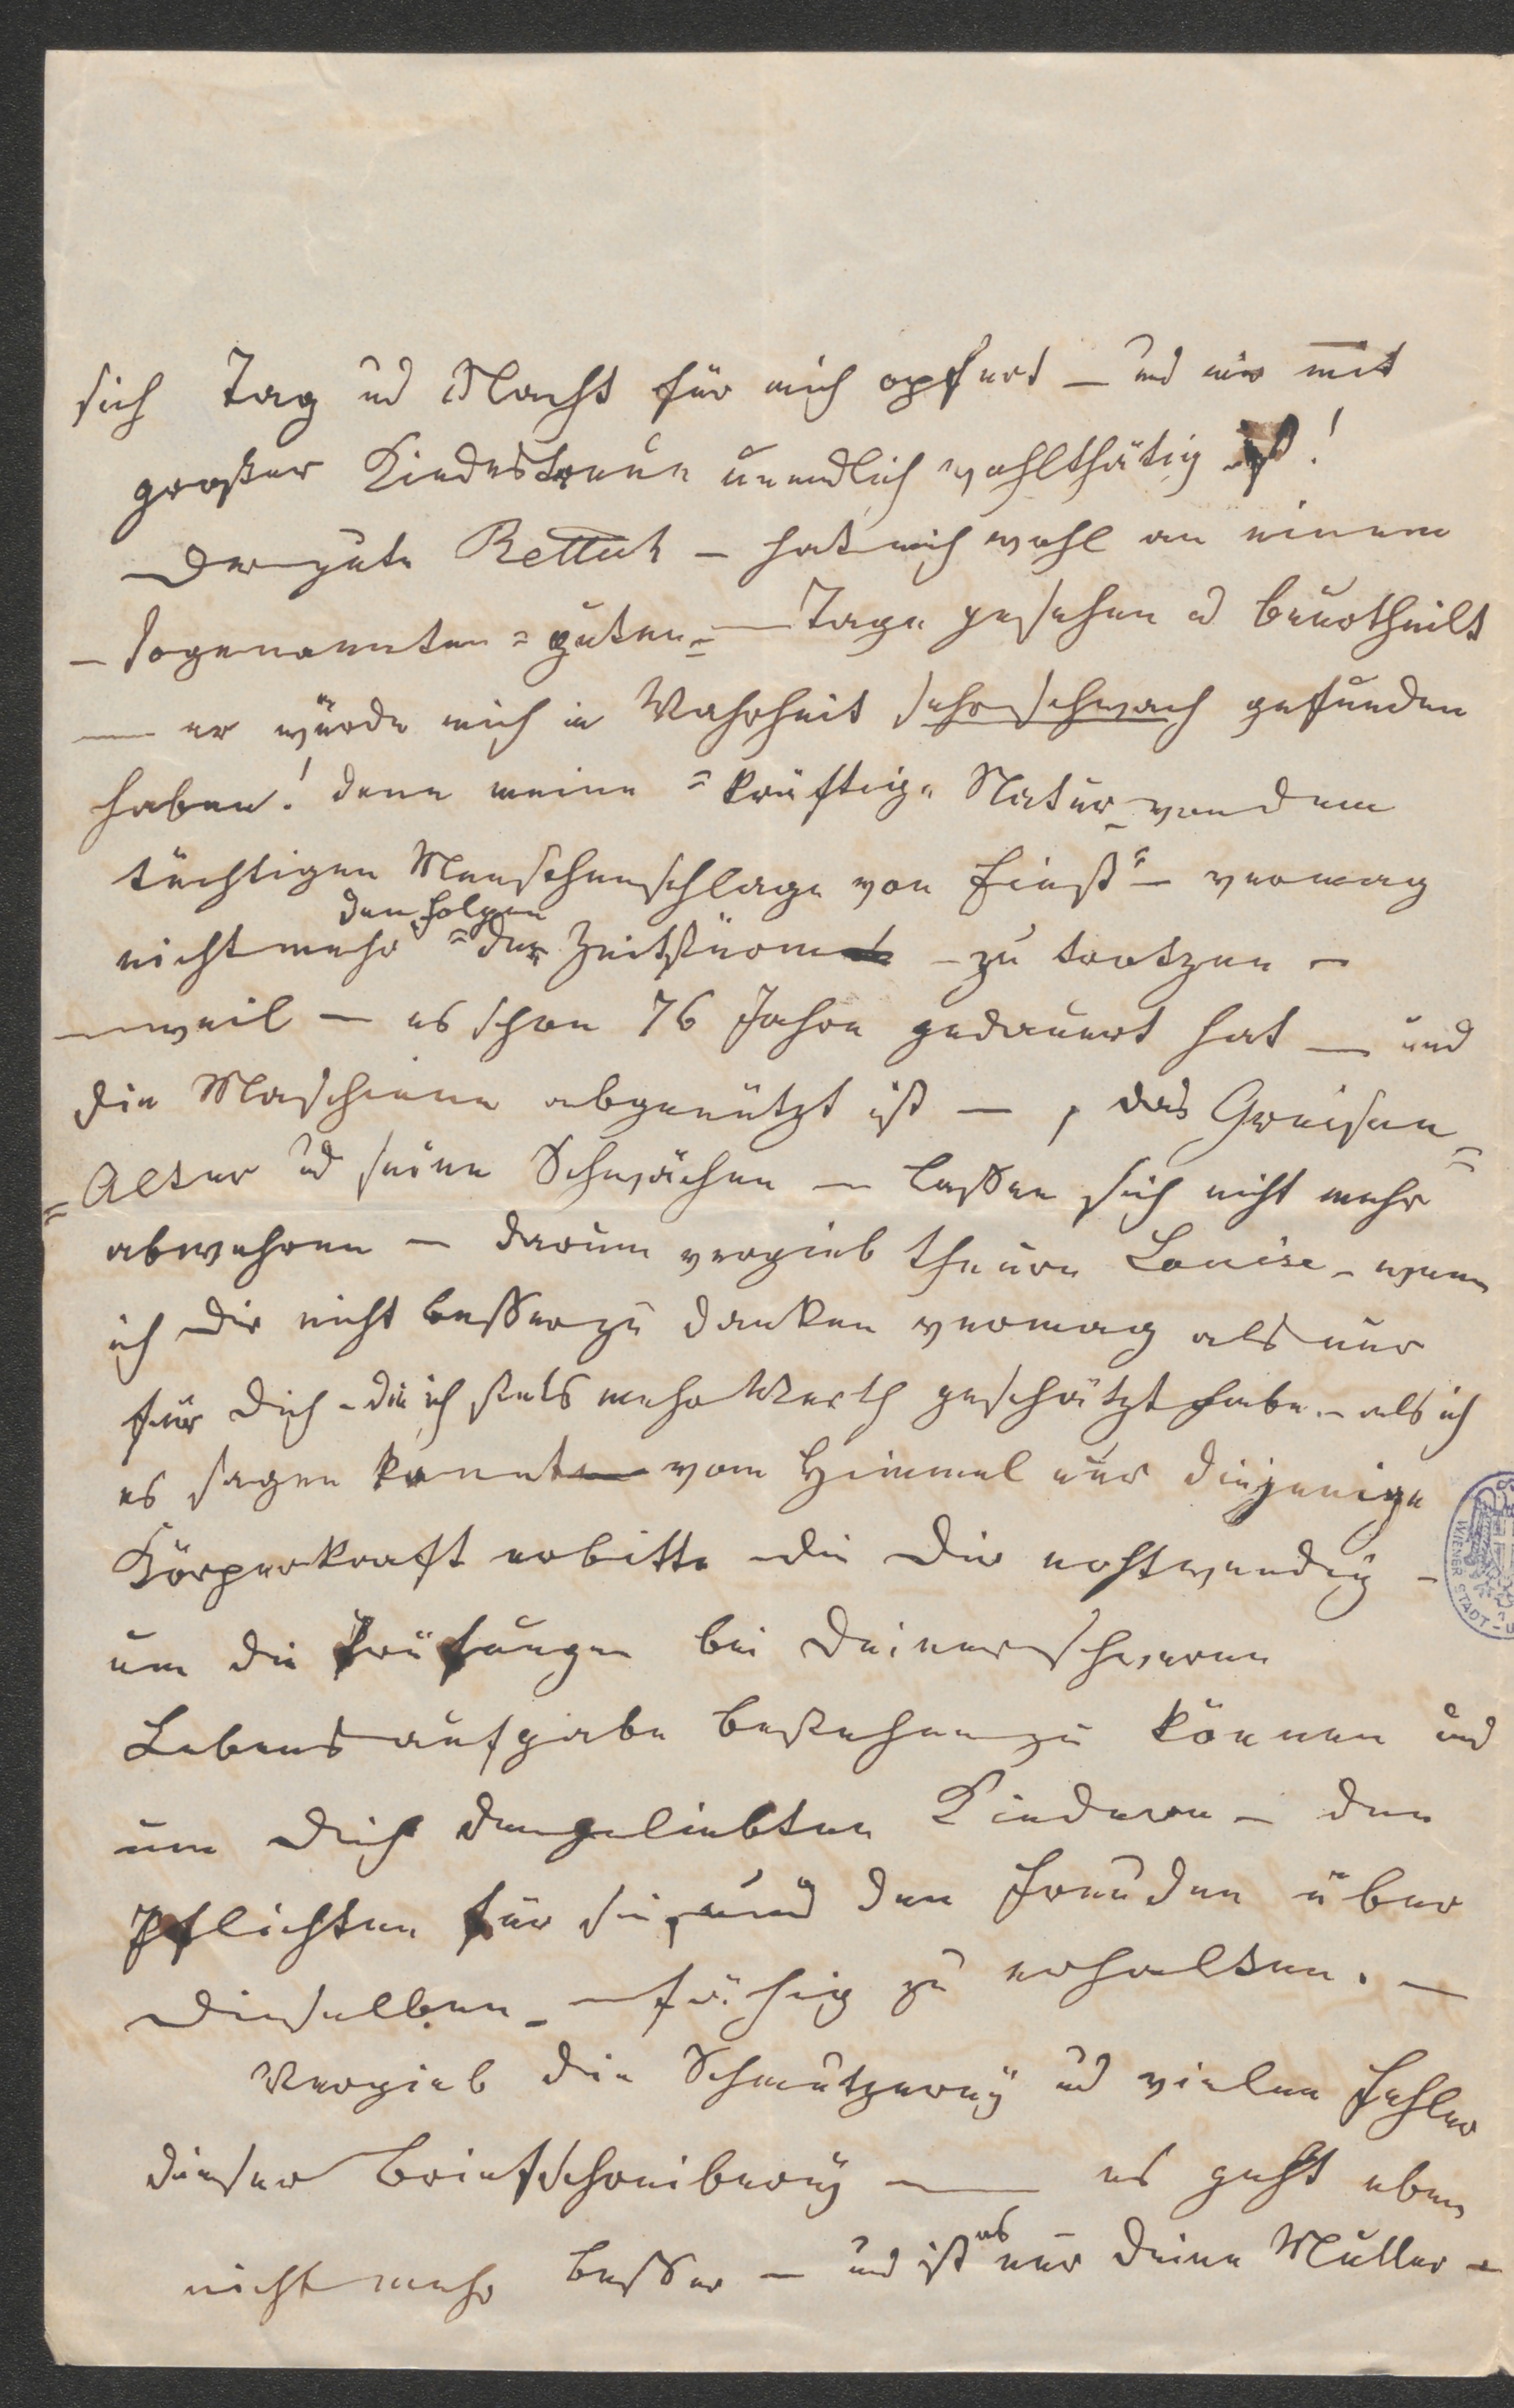 sich Tag ud Nacht für mich opfert – und mir mit
großer Kindestreue unendlich wohlthätig ist!
Der gute Rettich – hat mich wohl an einem
– sogenannten = guten = – Tage gesehen ud beurtheilt
– er würde mich in Wahrheit sehr schwach gefunden
haben! denn meine = kräftige Natur – von dem
tüchtigen Menschenschlage von Einst" – vermag
den Folgen
nicht mehr = der Zeitstürme – zu trotzen –
– weil – es schon 76 Jahre gedauert hat – und
die Maschiene abgenützt ist –, das Greisen=
=Alter ud seine Schwächen – lassen sich nicht mehr
abwehren – darum vergieb theure Louise – wenn
ich Dir nicht besser zu danken vermag als nur
für Dich – die ich stets mehr Werth geschätzt habe – als ich
es sagen konnte – vom Himmel nur diejenige
Körperkraft erbitte die Dir nothwendig –
um die Prüfungen bei Deiner schweren
Lebensaufgabe bestehen zu können und
um Dich den geliebten Kindern – den
Pflichten für sie, und den Freuden über
Dieselben – fähig zu erhalten. –
Vergieb die Schmutzerey ud vielen Fehler
dieser Briefschreiberey – es geht eben
es
nicht mehr besser – und ist nur deine Mutter –
WIENER STADT-U